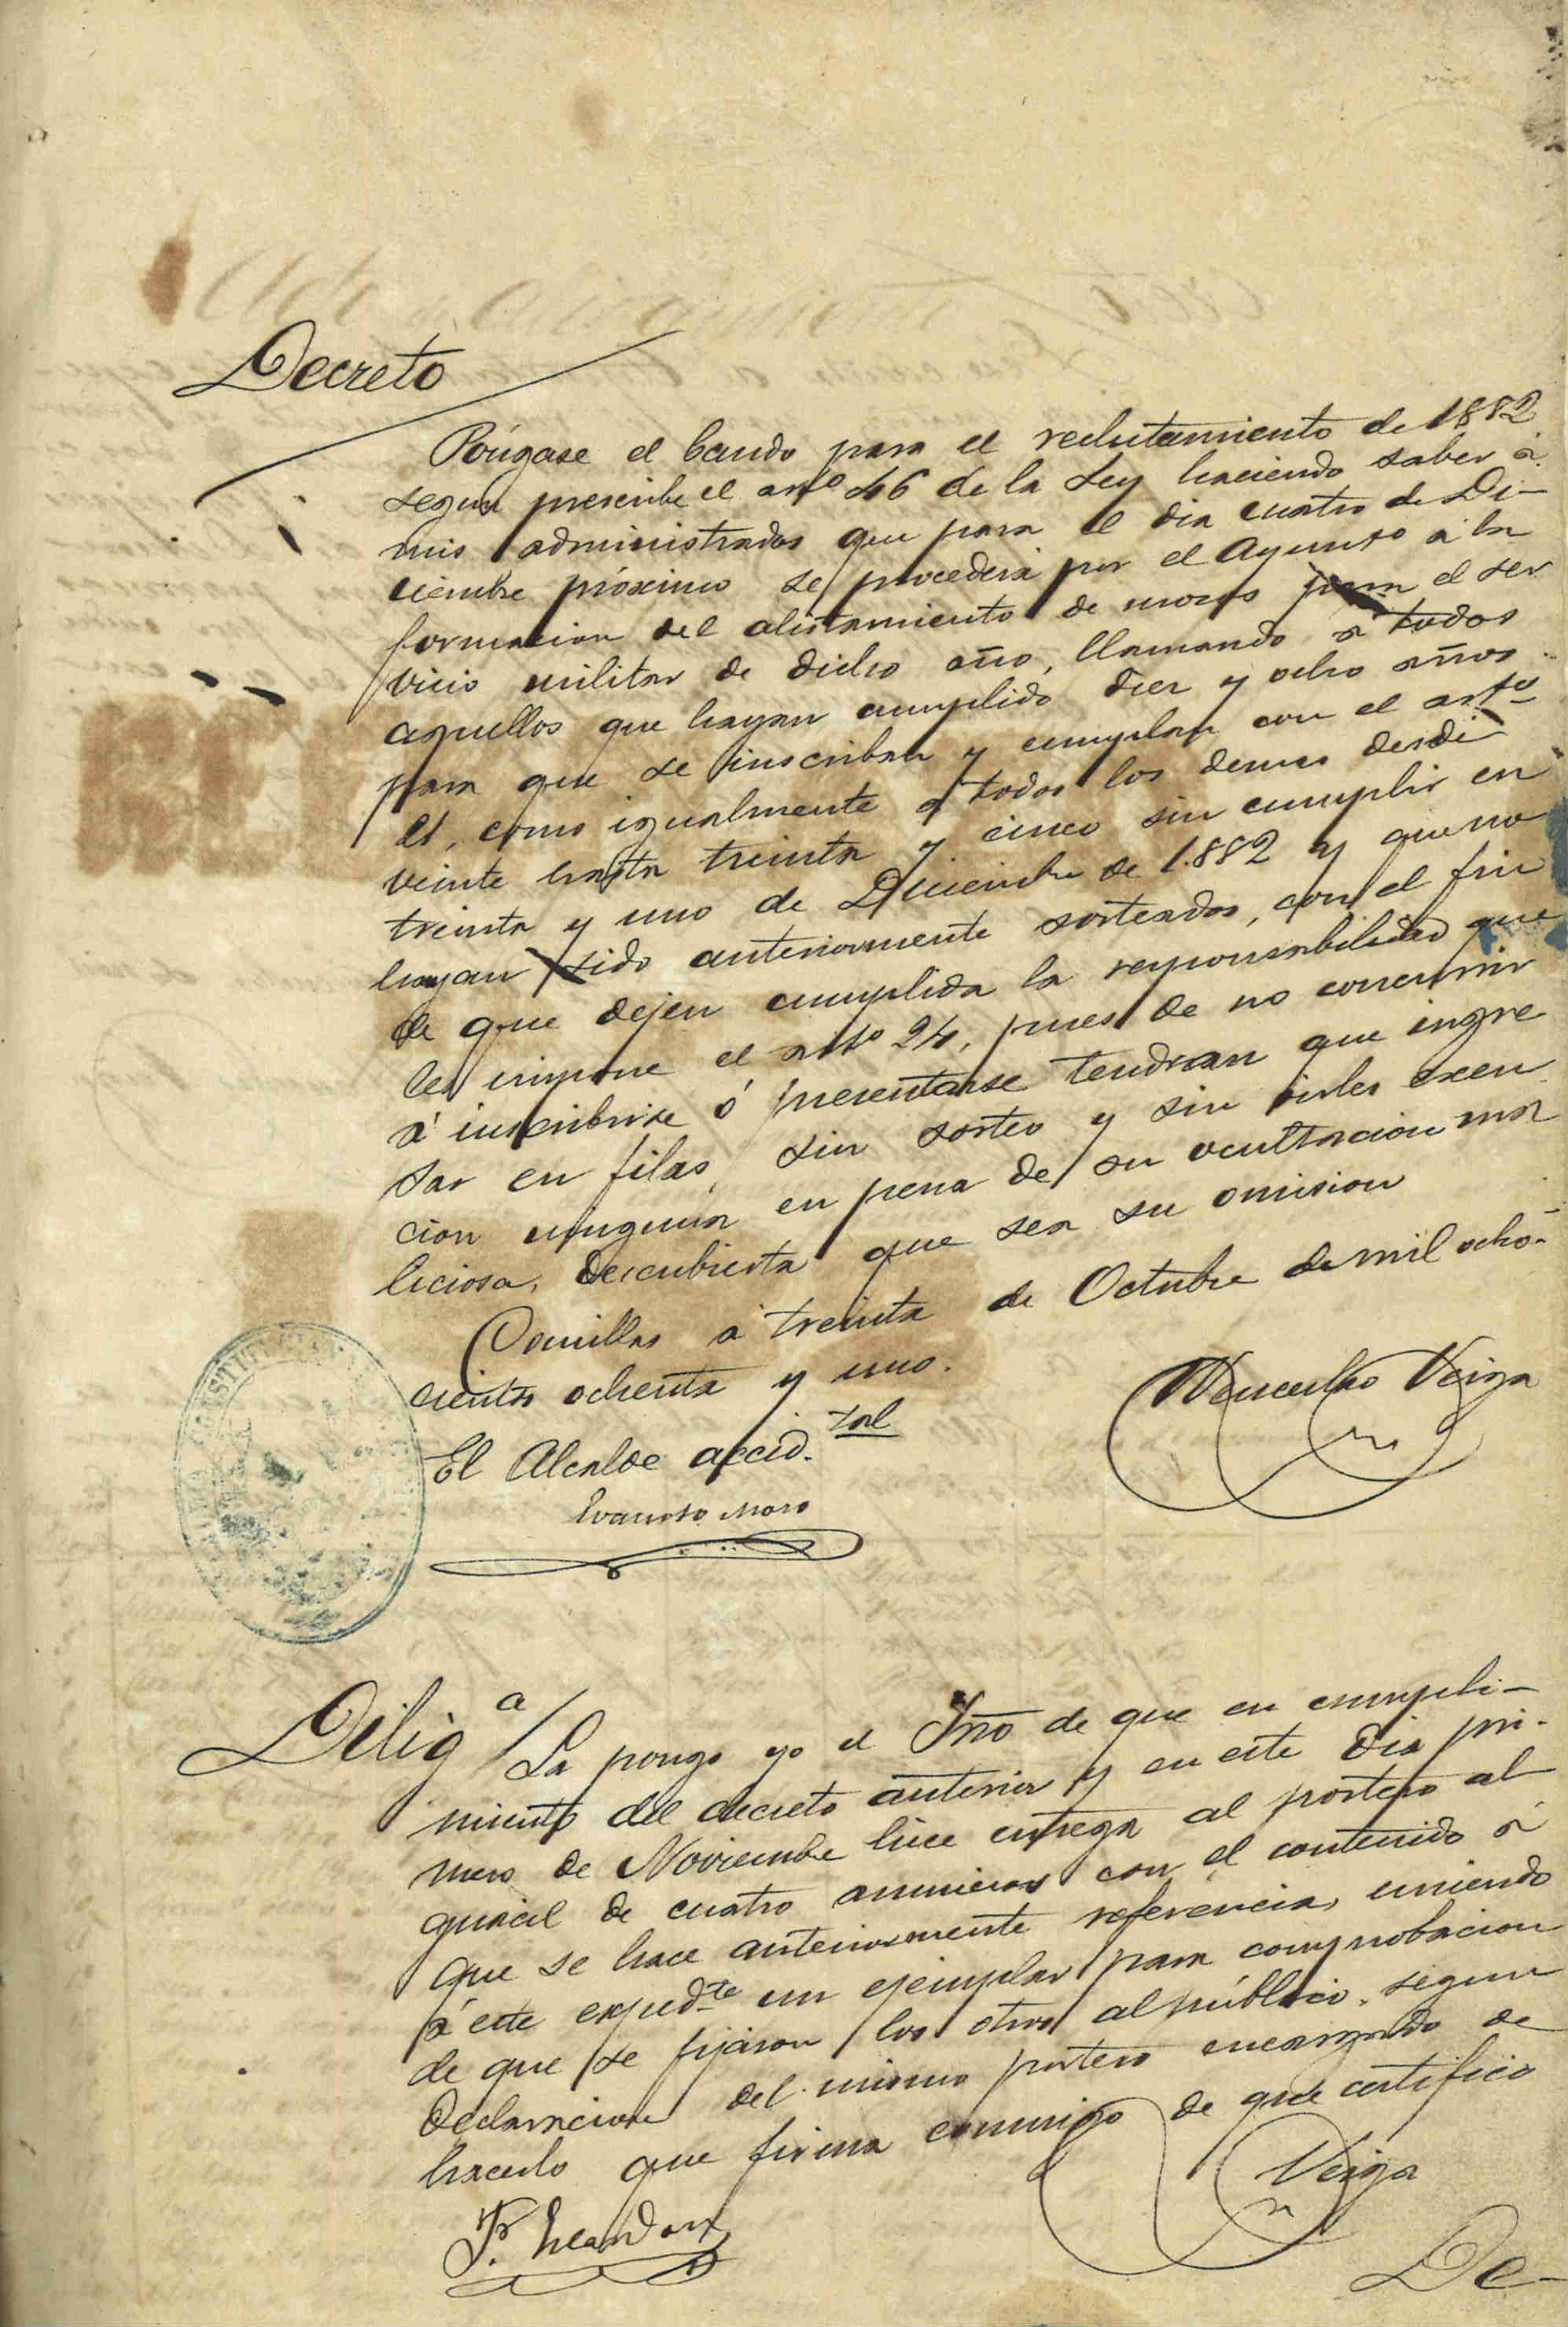 Decreto
Póngase el bando para el reclutamiento de 1882
segun prescribe el artº 46 de la Ley haciendo saber á
mis administrados que para el dia cuatro de Di-
ciembre próximo se procederá por el Ayuntº á la
formacion del alistamiento de mozos para el ser
vicio militar de dicho año, llamando á todos
aquellos que hayan cumplido diez y ocho años
para que se inscriban y cumplan con el artº
21, como igualmente á todos los demas desde
veinte hasta treinta y cinco sin cumplir en
treinta y uno de Diciembre de 1.882 y que no
hayan sido anteriormente sorteados, con el fin
de que dejen cumplida la responsabilidad que
les impone el artº 24, pues de no concurrir
á inscribirse ó presentarse tendrian que ingre
sar en filas, sin sorteo y sin oirles exen
cion ninguna en pena de su ocultacion ma
liciosa, descubierta que sea su omision
Comillas á treinta de Octubre de mil ocho-
cientos ochenta y uno.
El Alcalde accid.tal
Evaristo Moro
Wenceslao Veiga
Diliga / La pongo yo el Srio de que en cumpli-
miento del decreto anterior y en este dia pri-
mero de Noviembre hice entrega al portero al
guacil de cuatro anuncios con el contenido á
que se hace anteriormente referencia, uniendo
á este expedte un ejemplar para comprobacion
de que se fijaron los otros al público, segun
declaracion del mismo portero encargado de
hacerlo que firma conmigo de que certifico
Veiga
De-